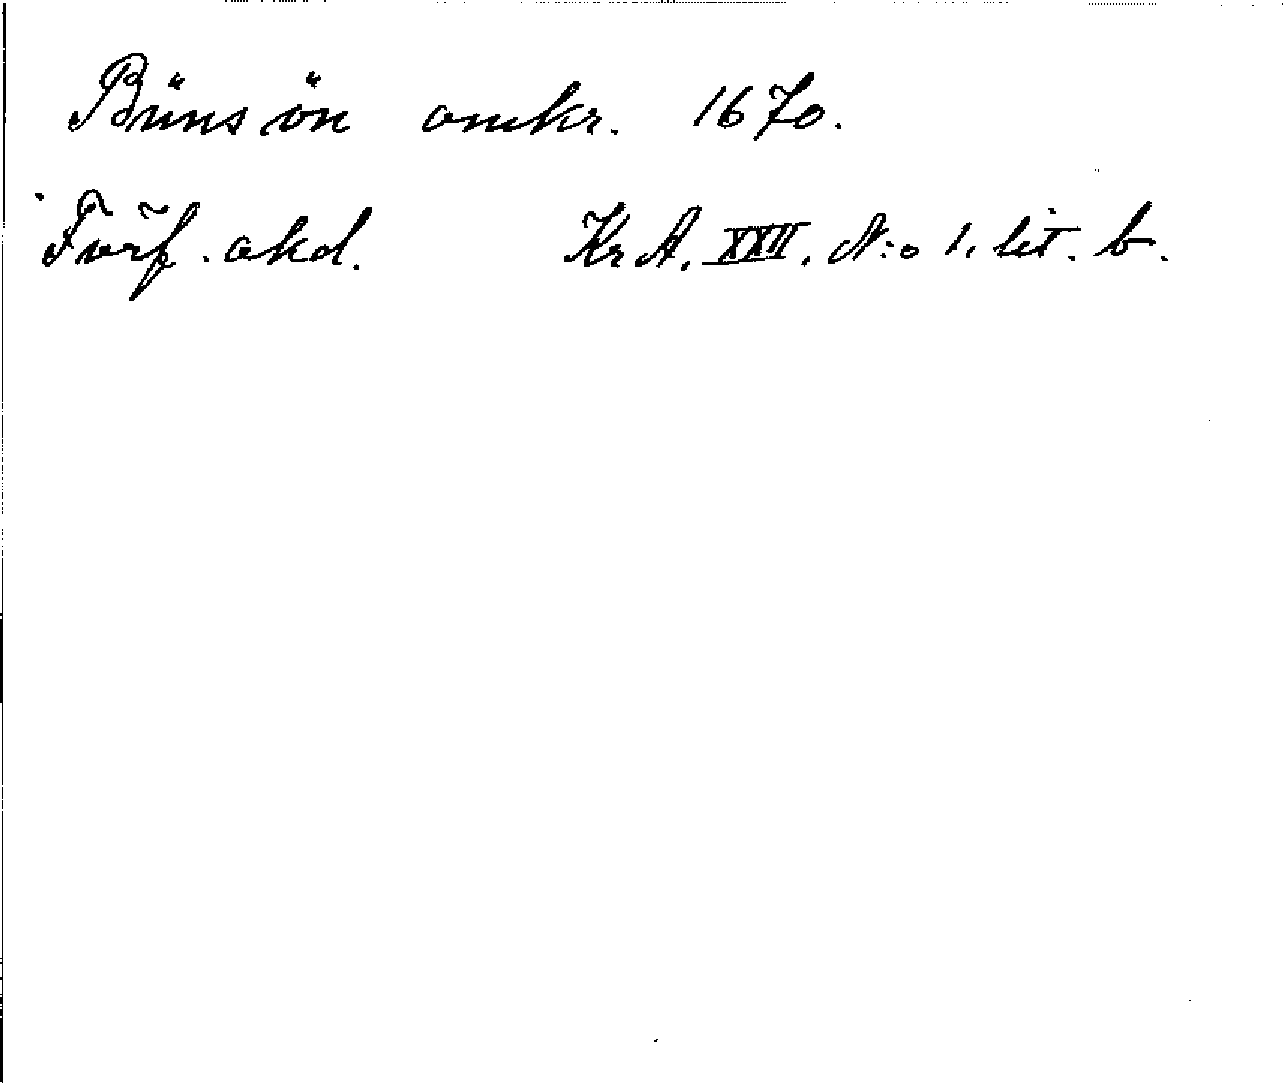 Bünsön omkr. 1670.
Förf. okd. Kr A. XXII. N:o 1. lit. b.